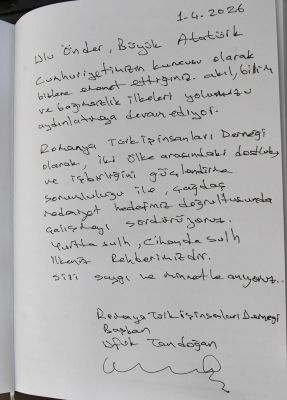 1-4.2026
Ulu Önder, Büyük Atatürk
Cumhuriyetimizin kurucusu olarak
bizlere emanet ettiğiniz akıl, bilim
ve bağımsızlık ilkeleri yolumuzu
aydınlatmaya devam ediyor.
Romanya Türk İşinsanları Derneği
olarak, iki ülke arasındaki dostluğu
ve işbirliğini güçlendirme
sorumluluğu ile, çağdaş
medeniyet hedefimiz doğrultusunda
çalışmayı sürdürüyoruz.
Yurtta sulh, Cihanda sulh
ilkeniz Rehberimizdir.
Sizi saygı ve minnetle anıyoruz..
Romanya Türk İşinsanları Derneği
Başkan
Ufuk Tandoğan